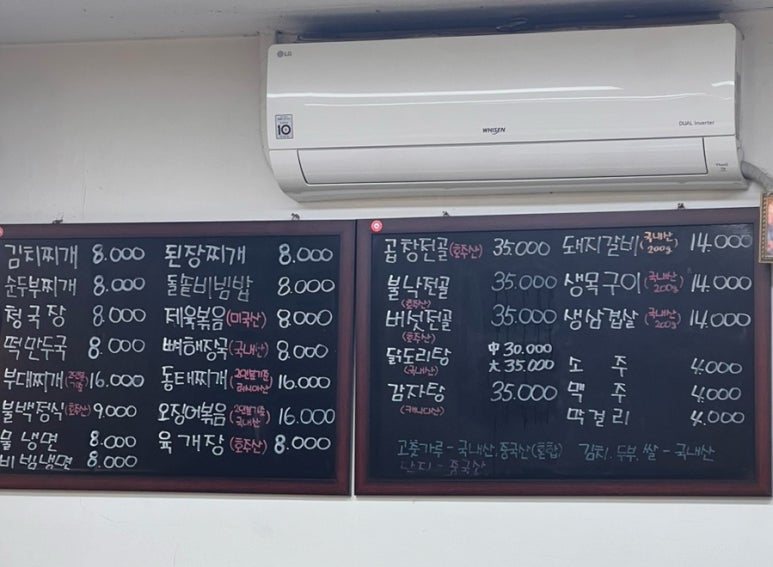 LG
10
WHISEN
DUAL Inverter
김치찌개 8.000 된장찌개 8.000
순두부찌개 8.000 돌솥비빔밥 8.000
청국장 8.000 제육볶음(미국산) 8.000
떡만두국 8.000 뼈해장국(국내산) 8.000
부대찌개 16.000 동태찌개(2인분기준 러시아산) 16.000
불백정식(호주산) 9.000 오징어볶음(2인분기준 국내산) 16.000
물냉면 8.000 육개장(호주산) 8.000
비빔냉면 8.000
곱창전골(호주산) 35.000 돼지갈비(국내산 200g) 14.000
불낙전골(호주산) 35.000 생목구이(국내산 200g) 14.000
버섯전골(호주산) 35.000 생삼겹살(국내산 200g) 14.000
닭도리탕(국내산) 中 30.000
大 35.000 소주 4.000
감자탕(캐나다산) 35.000 맥주 4.000
막걸리 4.000
고춧가루-국내산,중국산(혼합) 김치,두부,쌀-국내산
낙지-중국산